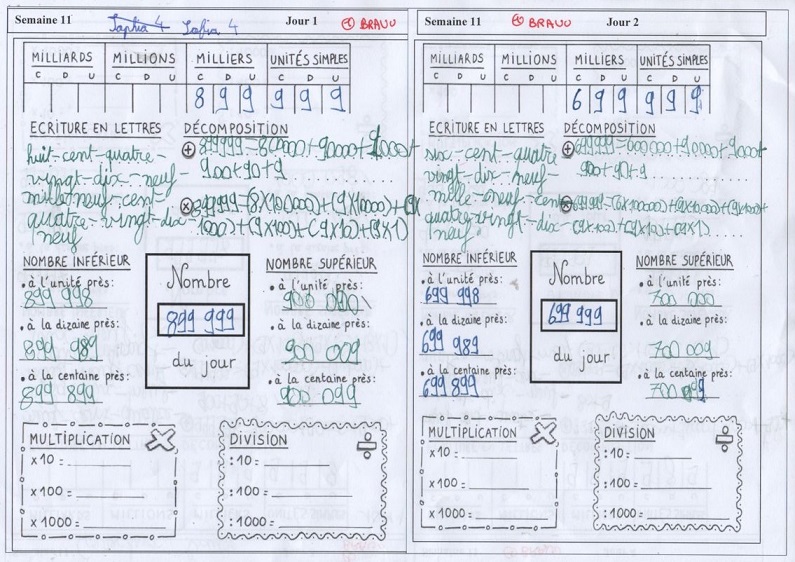 Semaine 11 Sophia 4 Sofia 4 Jour 1 + BRAVO
MILLIARDS MILLIONS MILLIERS UNITÉS SIMPLES
C D U C D U C D U C D U
8 9 9 9 9 9
ECRITURE EN LETTRES
huit-cent-quatre-
vingt-dix-neuf-
mille-neuf-cent-
quatre-vingt-dix-
neuf
DÉCOMPOSITION
+ 899999=800000+90000+9000+
900+90+9
× 899999=(8×100000)+(9×10000)+(9×
1000)+(9×100)+(9×10)+(9×1)
NOMBRE INFÉRIEUR
• à l'unité près:
899 998
• à la dizaine près:
899 989
• à la centaine près:
899 899
Nombre
899 999
du jour
NOMBRE SUPÉRIEUR
• à l'unité près:
900 000
• à la dizaine près:
900 009
• à la centaine près:
900 099
MULTIPLICATION ×
x10 =
x100 =
x1000 =
DIVISION ÷
:10 =
:100 =
:1000 =
Semaine 11 + BRAVO Jour 2
MILLIARDS MILLIONS MILLIERS UNITÉS SIMPLES
C D U C D U C D U C D U
6 9 9 9 9 9
ECRITURE EN LETTRES
six-cent-quatre
vingt-dix-neuf-
mille-neuf-cent
quatre-vingt-dix-
neuf
DÉCOMPOSITION
+ 699999=600000+90000+9000+
900+90+9
× 699999=(6×100000)+(9×10000)+(9×1000)+
(9×100)+(9×10)+(9×1)
NOMBRE INFÉRIEUR
• à l'unité près:
699 998
• à la dizaine près:
699 989
• à la centaine près:
699 899
Nombre
699 999
du jour
NOMBRE SUPÉRIEUR
• à l'unité près:
700 000
• à la dizaine près:
700 009
• à la centaine près:
700 099
MULTIPLICATION ×
x10 =
x100 =
x1000 =
DIVISION ÷
:10 =
:100 =
:1000 =